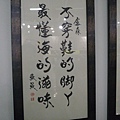 不穿鞋的脚丫
最懂海的滋味